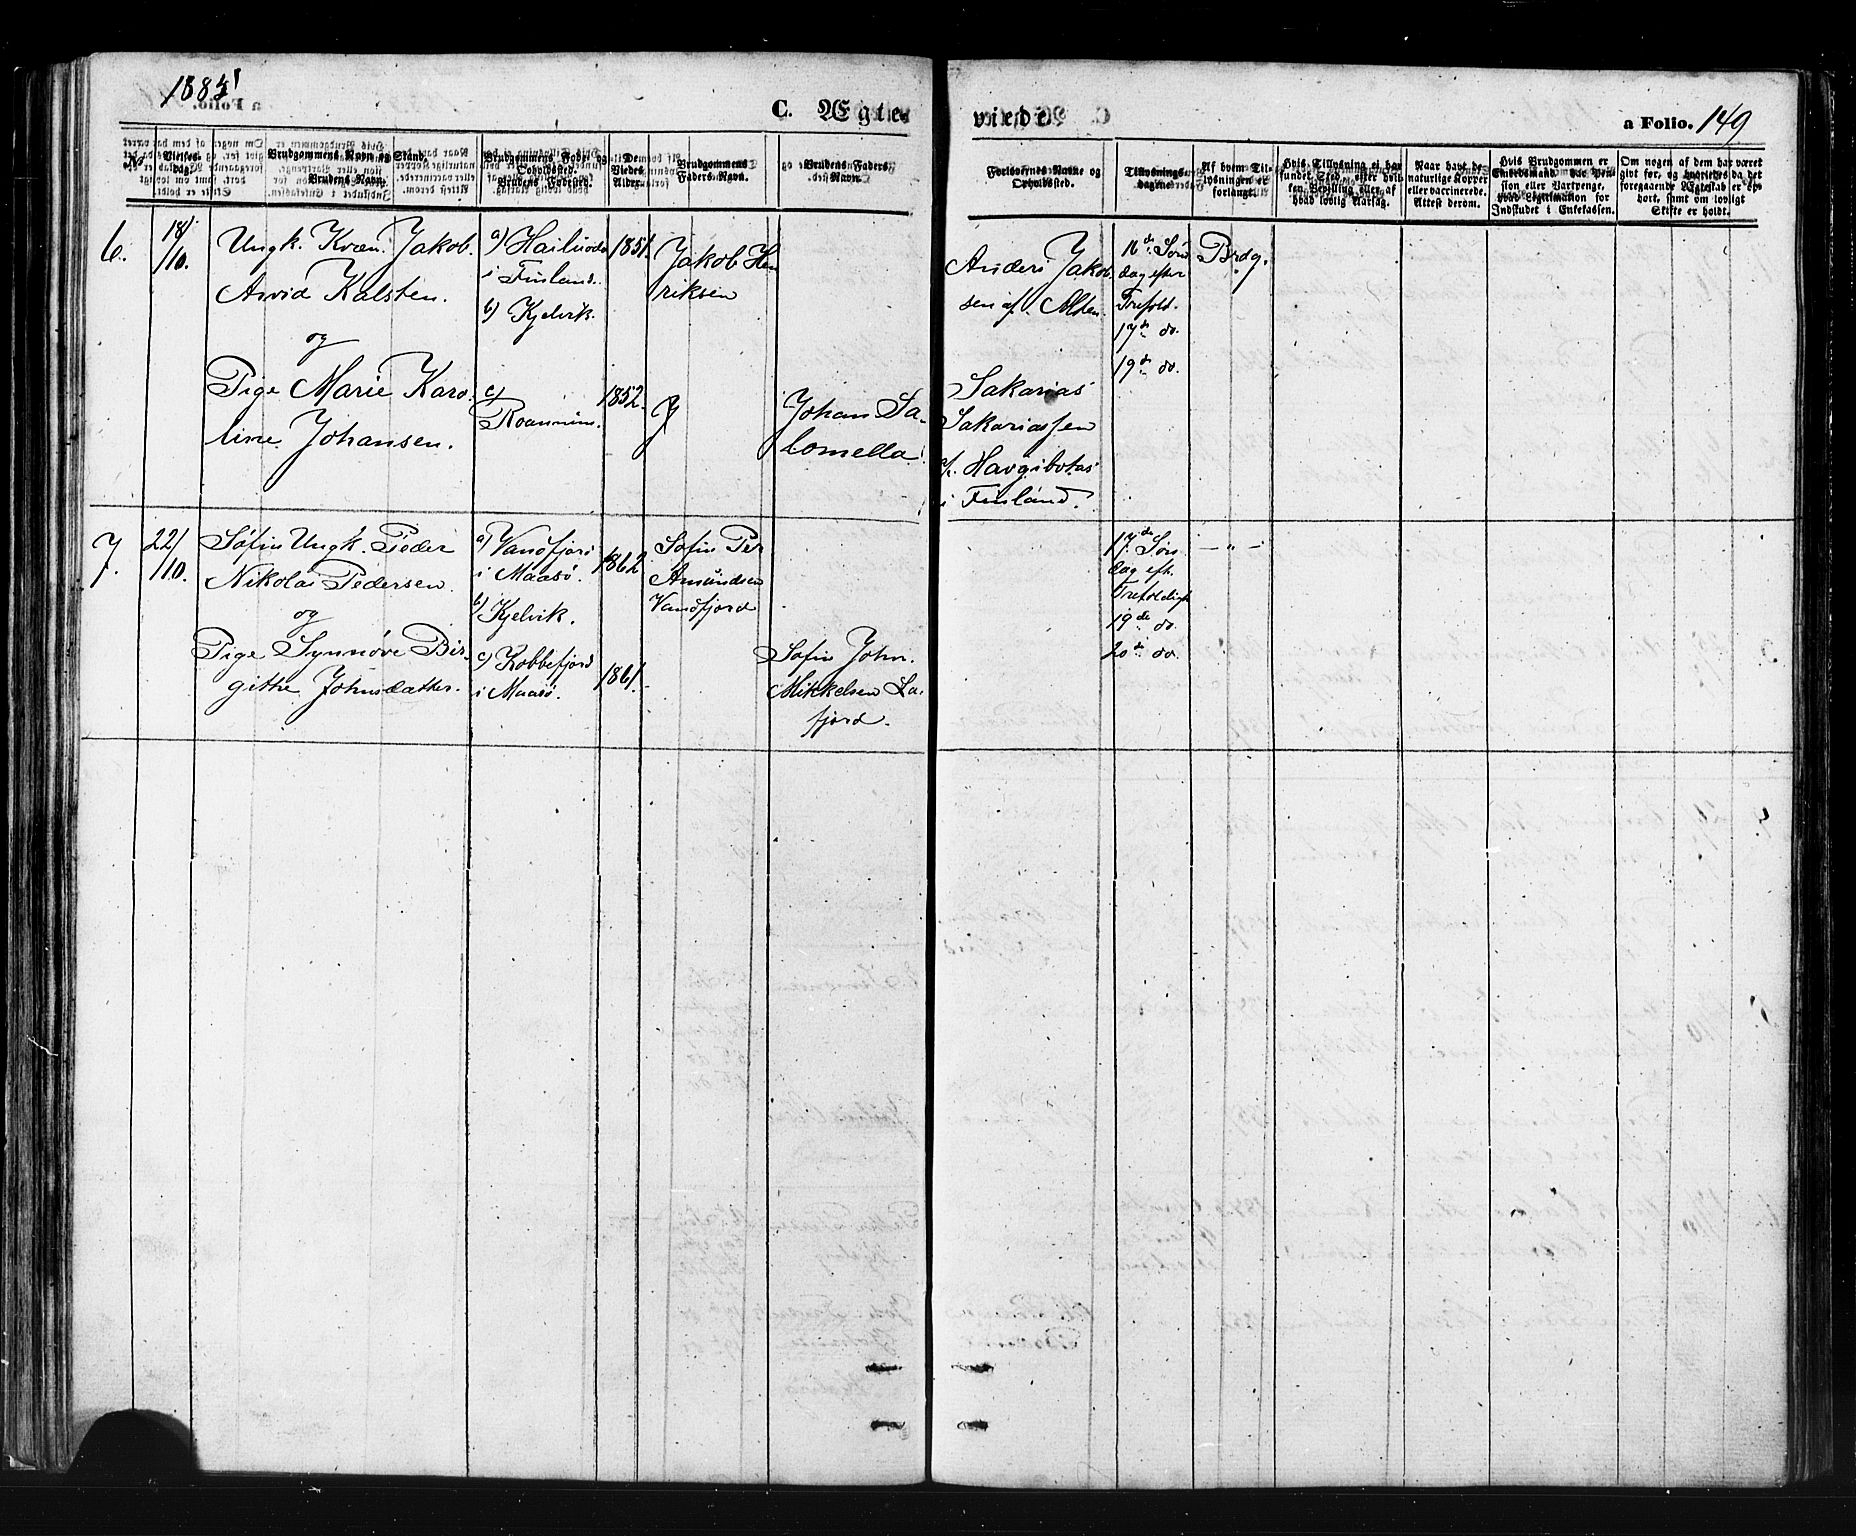 1885
C. Ægte
viede
a Folio. 149
No.
Vielses-
dag.
Brudgommens Navn og Stand.
Brudens Navn.
Brudgommens Føde- og
Opholdssted.
Brudens Fødested.
De
Viedes
Alder.
Brudgommens
Faders Navn.
Brudens Faders
Navn.
Forlovernes Navne og
Opholdssted.
Tillysnings-
dagene
Af hvem Til-
lysningen er
forlangt.
Hvis Tillysning ei har
fundet Sted, efter hvil-
ken Bevilling eller af
hvad lovlig Aarsag.
Naar havt de
naturlige Kopper
eller vaccinerede.
Attest derom.
Hvis Brudgommen er
Embedsmand
sion eller Vartpenge,
hvad Legitimation for
Indskudet i Enkekassen.
Om nogen af dem har været
gift før, og hvorledes da det
foregaaende Ægteskab er op-
hørt, samt om lovligt
Skifte er holdt.
6.
18/
/10.
Ungk. Kvæn. Jakob
Arvid Kalsten.
og
Pige Marie Karo-
line Johansen.
a) Hailuodo
i Finland.
b) Kjelvik.
c)
1851.
1852.
Jakob Hen
riksen
Johan Sa-
lomella.
Anders Jakob
sen af Alten.
Sakarias
Sakariassen
i Finland.
16de Søn
dag efter
Trefold.
17de do.
19de do.
Brdg.
7.
22/
/10.
Søfin Ungk. Peder
Nikolai Pedersen
og
Pige Synnøve Bir-
githe Johnsdatter.
a) Vandfjord
i Maasø.
b) Kjelvik.
c) Kobbefjord
i Maasø.
1862
1861.
Søfin Per
Amundsen
Vandfjord
Søfin John
Mikkelsen La-
fjord.
17de Søn
dag eft.
Trefoldigh
19de do.
20de do.
— " —